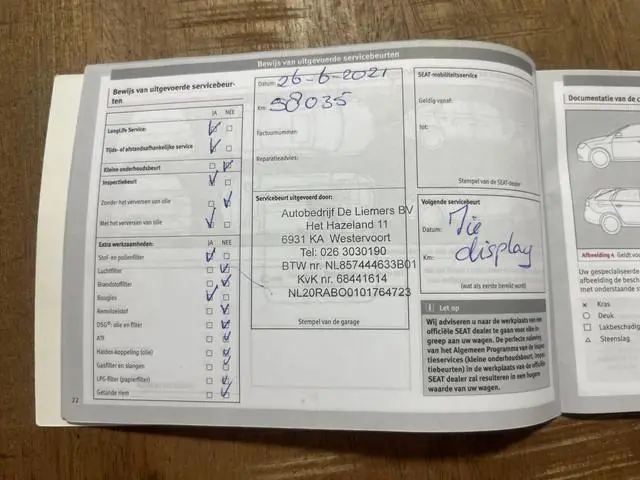 Bewijs van uitgevoerde servicebeurten
Bewijs van uitgevoerde servicebeur-
ten
JA NEE
LongLife Service:
Tijds- of afstandsafhankelijke service
Kleine onderhoudsbeurt
Inspectiebeurt
Zonder het verversen van olie
Met het verversen van olie
Extra werkzaamheden: JA NEE
Stof- en pollenfilter
Luchtfilter
Brandstoffilter
Bougies
Remvloeistof
DSG®: olie en filter
ATF
Haldex-koppeling (olie)
Gasfilter en slangen
LPG-filter (papierfilter)
Getande riem
22
Datum: 26-6-2021
Km: 58035
Factuurnummer:
Reparatieadvies:
Servicebeurt uitgevoerd door:
Autobedrijf De Liemers BV
Het Hazeland 11
6931 KA Westervoort
Tel: 026 3030190
BTW nr. NL857444633B01
KvK nr. 68441614
NL20RABO0101764723
Stempel van de garage
SEAT-mobiliteitsservice
Geldig vanaf:
tot:
Stempel van de SEAT-dealer
Volgende servicebeurt
Datum: Zie
Km: display
(wat als eerste bereikt word)
i Let op
Wij adviseren u naar de werkplaats van een
officiële SEAT dealer te gaan voor elke in-
greep aan uw wagen. De perfecte naleving
van het Algemeen Programma van de Inspec-
tieservices (kleine onderhoudsbeurt, inspec-
tiebeurten) in de werkplaats van de officiële
SEAT dealer zal resulteren in een hogere
waarde van uw wagen.
Documentatie van de c
Afbeelding 4 Geldt v
Uw gespecialiseerde
afbeelding de besch
met onderstaande s
× Kras
○ Deuk
□ Lakbeschadig
△ Steenslag